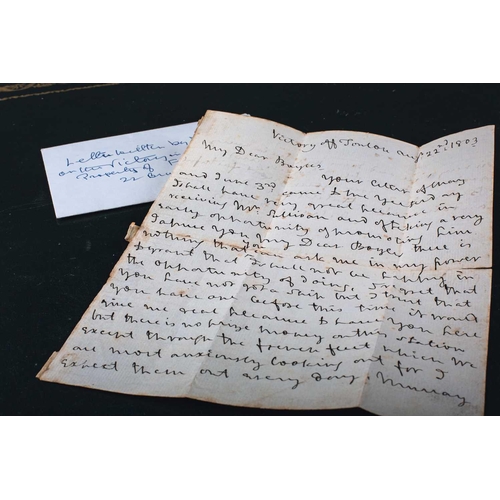 Letter written by
on the Victory
Property of
22
Victory off Toulon Augt 22nd 1803
My Dear Bayles
your letters of May
and June 3rd I have received my
I shall have great pleasure in
receiving Mr. Sullivan and of taking a very
early opportunity of promoting him
I assure you my Dear there is
nothing you can ask me in my power
to grant that I shall not be happy in
the opportunity of doing. I regret that
you have not got a ship but I trust that
you have one before this time it would
give me real pleasure to have you here
but there is no prize money on this station
except through the french fleet which we
are most anxiously looking out for I
Expect them out every day. Murray